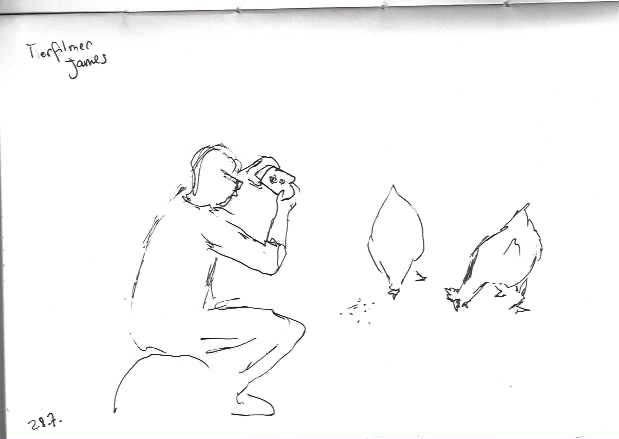 Tierfilmer
James
28.7.